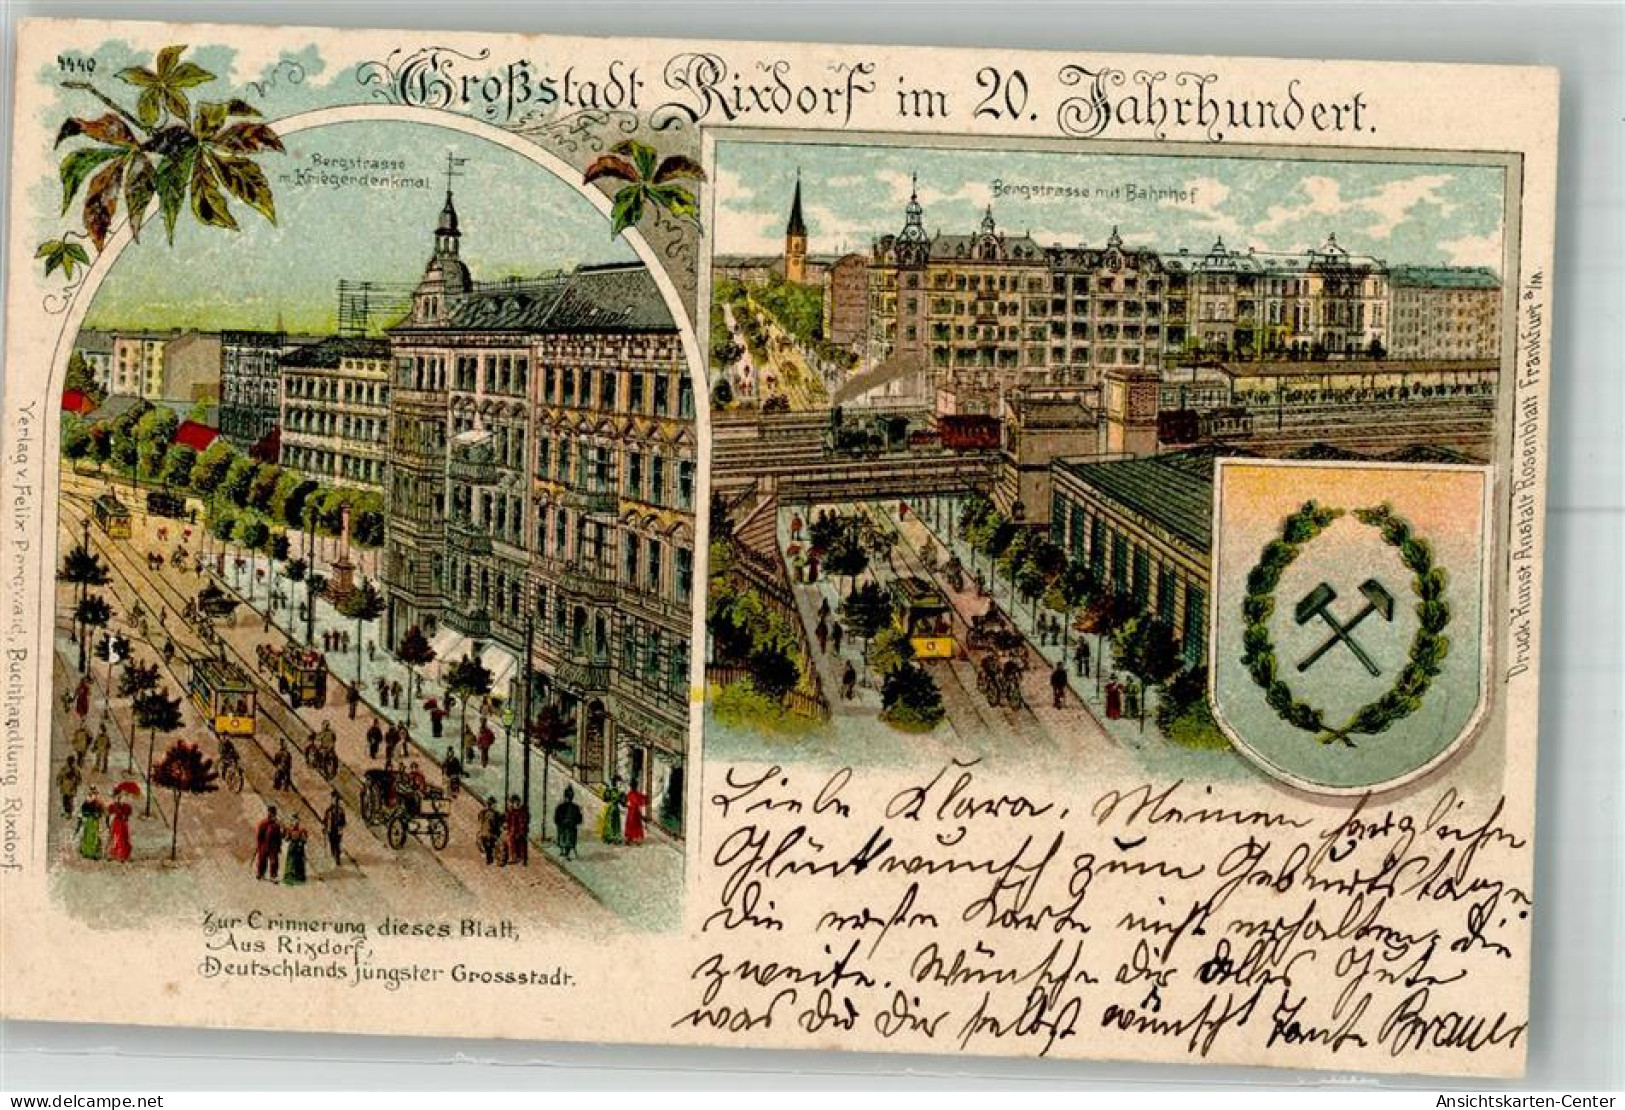 4440
Großstadt Rixdorf im 20. Jahrhundert.
Bergstrasse
m. Kriegerdenkmal
Bergstrasse mit Bahnhof
Verlag v. Felix Buchhandlung Rixdorf.
Druck Kunst Anstalt Rosenblatt Frankfurt a/M.
Zur Erinnerung dieses Blatt,
Aus Rixdorf,
Deutschlands jüngster Grossstadt.
Liebe Klara. Meinen herzlichen
Glückwunsch zum Geburtstage
die erste Karte nicht erhalten, die
zweite. Wünsche dir alles Gute
was Du dir selbst wünscht Tante Brauer
Ansichtskarten-Center
delcampe.net